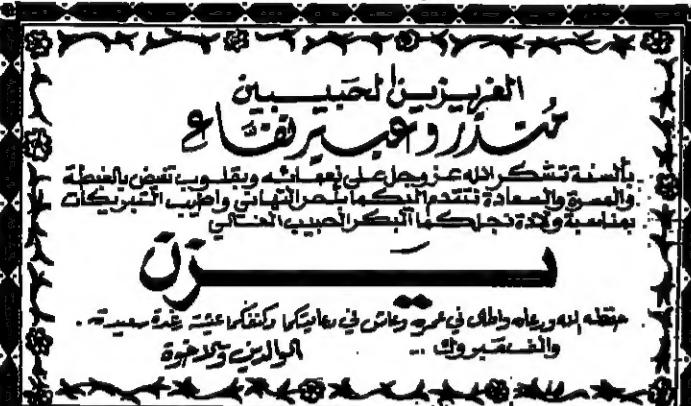 العزيزين الحبيبين
منذر وعبير لفاع
بألسنة تشكر الله عز وجل على نعمائه وبقلوب تفيض بالغبطة
والمسرة والسعادة نتقدم اليكما بأحر التهاني واطيب التبريكات
بمناسبة ولادة نجلكما البكر الحبيب الغالي
يزن
حفظه الله ورعاه واطال في عمره وعاش في رعايتكما وكنفكما عيشة رغدة سعيدة .
والف مبروك ... الوالدين والاخوة